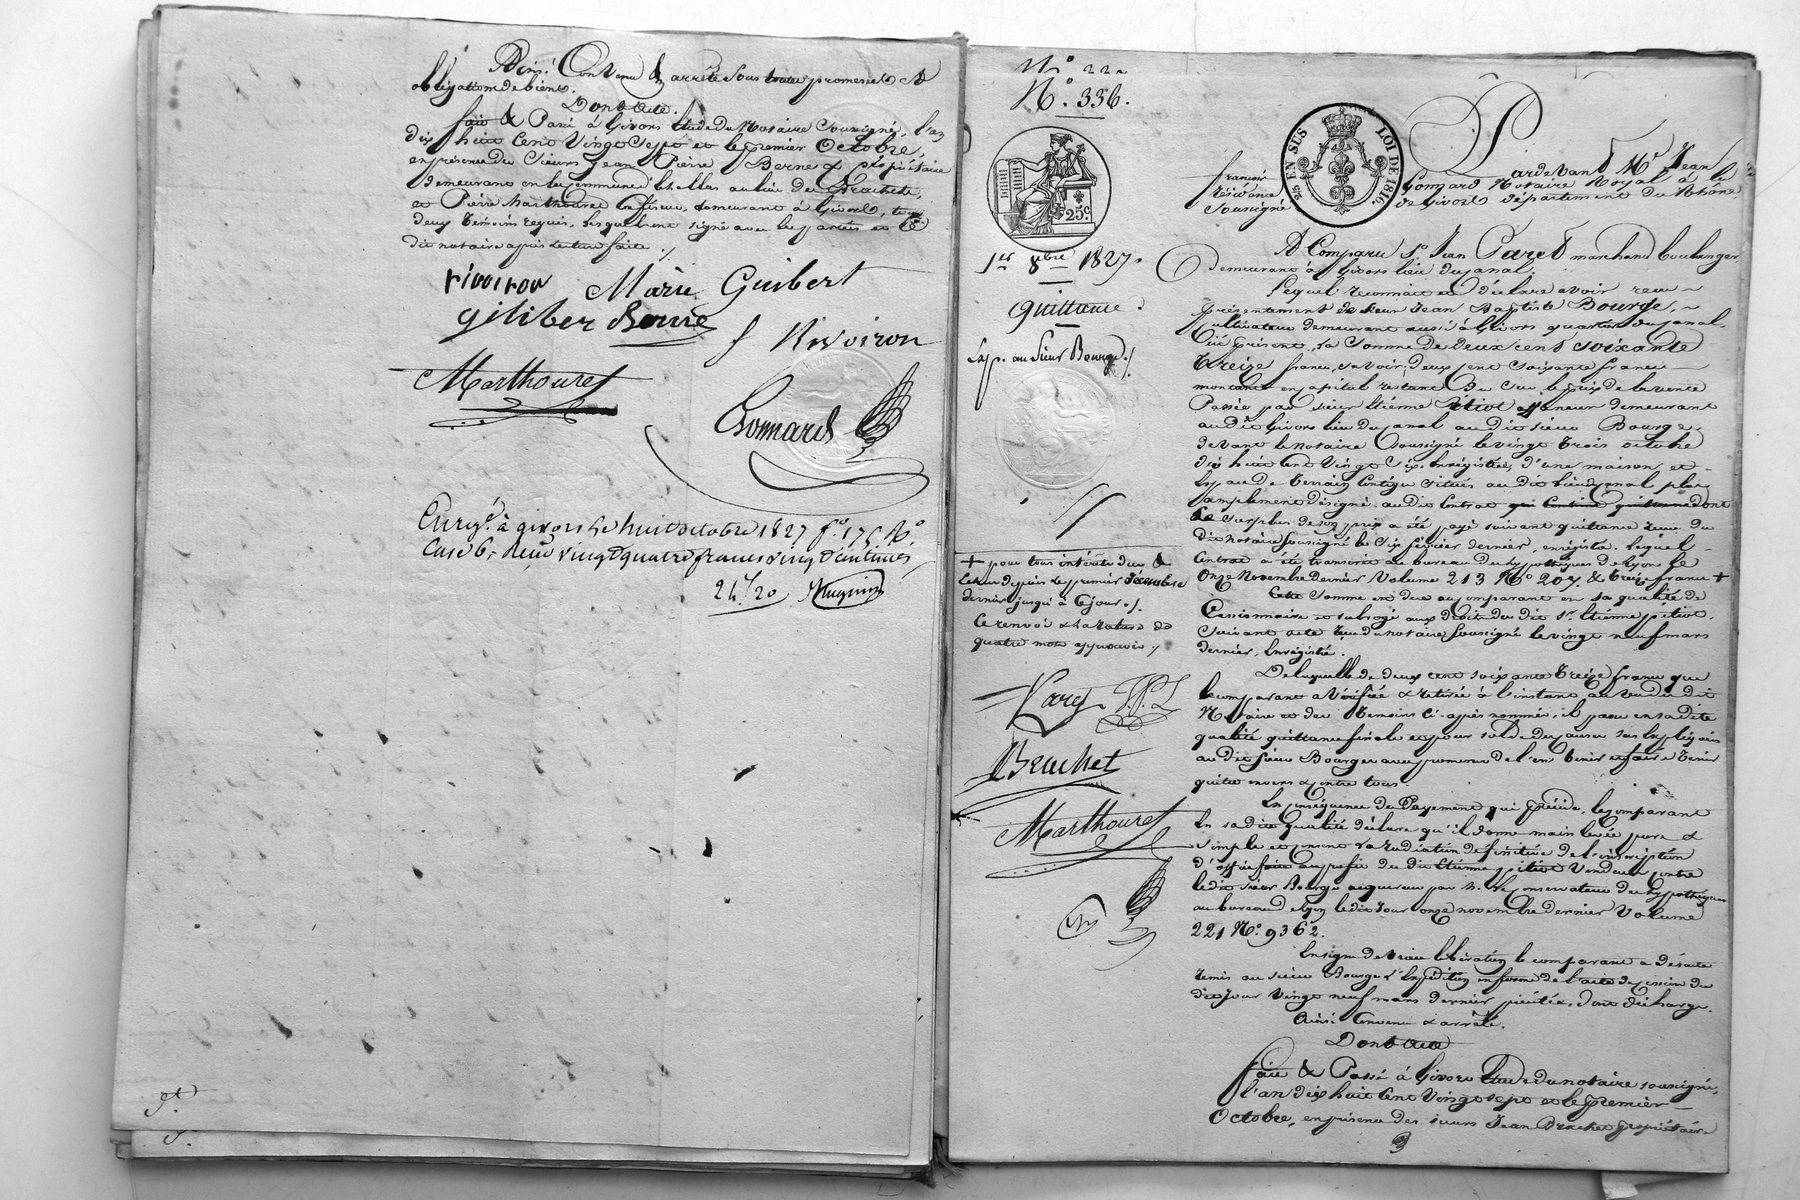 Ainsi Convenu & arrêté sous toutes promesses &
obligations de biens.
Dont acte.
fait & Passé à Givors étude du Notaire Soussigné, l'an
dix huit Cent Vingt Sept et le premier Octobre,
en présence des Sieurs Jean Pierre Berne propriétaire
demeurant en la Commune d'
et Pierre Marthouret demeurant à Givors,
deux témoins requis, lesquels ont signé avec les parties et le
dit notaire après lecture faite ./.
rivoiron Marie Guibert
giliber Berne
f Rivoiron
Marthouret
Gonnard
Enregé. à givors le huit octobre 1827 fo. 175 Ro.
Case 6. Reçu vingt quatre francs vingt centimes
24f 20
No. 22
No. 336.
25 c
1er 8bre 1827.
Quittance.
Exp. au Sieur Bourge ./.
+ pour tous intérêts
depuis le premier décembre
dernier jusqu'à ce jour ./.
Ce renvoi & la rature de
quatre mots approuvés ./.
Brachet
Marthouret
25 EN SUS LOI DE 1816.
Pardevant Me Jean
françois Gonnard Notaire Royal à la
résidence de Givors département du Rhône
soussigné
A Comparu sr. Jean marchand boulanger
demeurant à Givors lieu du Canal.
Lequel reconnait et déclare avoir reçu
présentement de sieur Jean Baptiste Bourge,
cultivateur demeurant aussi à Givors quartier du Canal
ici présent, la Somme de deux cent soixante
treize francs, savoir; deux cent soixante francs
montant en capital restant du sur le prix de la vente
Passée par sieur Etienne demeurant
au dit Givors lieu du Canal au dit sieur Bourge,
devant le notaire Soussigné le vingt trois octobre
dix huit Cent Vingt Six, enregistrée, d'une maison et
espace de terrain contigu situés au dit lieu du Canal plus
amplement désigné au dit contrat qui contient quittance dont
le surplus de son prix a été payé suivant quittance reçue du
dit notaire soussigné le six février dernier, enregistrée. Lequel
contrat a été transcrit au bureau des hypothèques de Lyon le
onze Novembre dernier Volume 213 No. 207, & treize francs +
Cette Somme est due au comparant en sa qualité de
Cessionnaire et subrogé aux droits du dit sr. Etienne
suivant acte reçu du notaire soussigné le vingt neuf mars
dernier, enregistré.
De laquelle de deux cent soixante treize francs que
le comparant a vérifiée & retirée à l'instant au vu du dit
Notaire et des témoins ci-après nommés, il passe en sa dite
qualité quittance finale et pour solde des causes sus expliquées
au dit sieur Bourge avec promesse de l'en tenir et faire tenir
quitte envers & contre tous.
En conséquence du Payement qui précède, le comparant
en sa dite qualité déclare qu'il donne main levée pure &
simple et consent la radiation définitive de l'inscription
d'office faite au profit du dit Etienne vendeur contre
le dit sieur Bourge acquéreur par Mr. le conservateur des hypothèques
au bureau de Lyon le dit jour onze novembre dernier Volume
221 No. 9362.
En signe de vraie libération le comparant a de suite
remis au sieur Bourge l'expédition en forme de l'acte de cession du
dit jour vingt neuf mars dernier précité, dont décharge.
Ainsi Convenu & arrêté.
Dont acte
fait & Passé à Givors étude du notaire soussigné,
l'an dix huit Cent Vingt sept et le premier
Octobre, en présence des sieurs Jean Brachet propriétaire